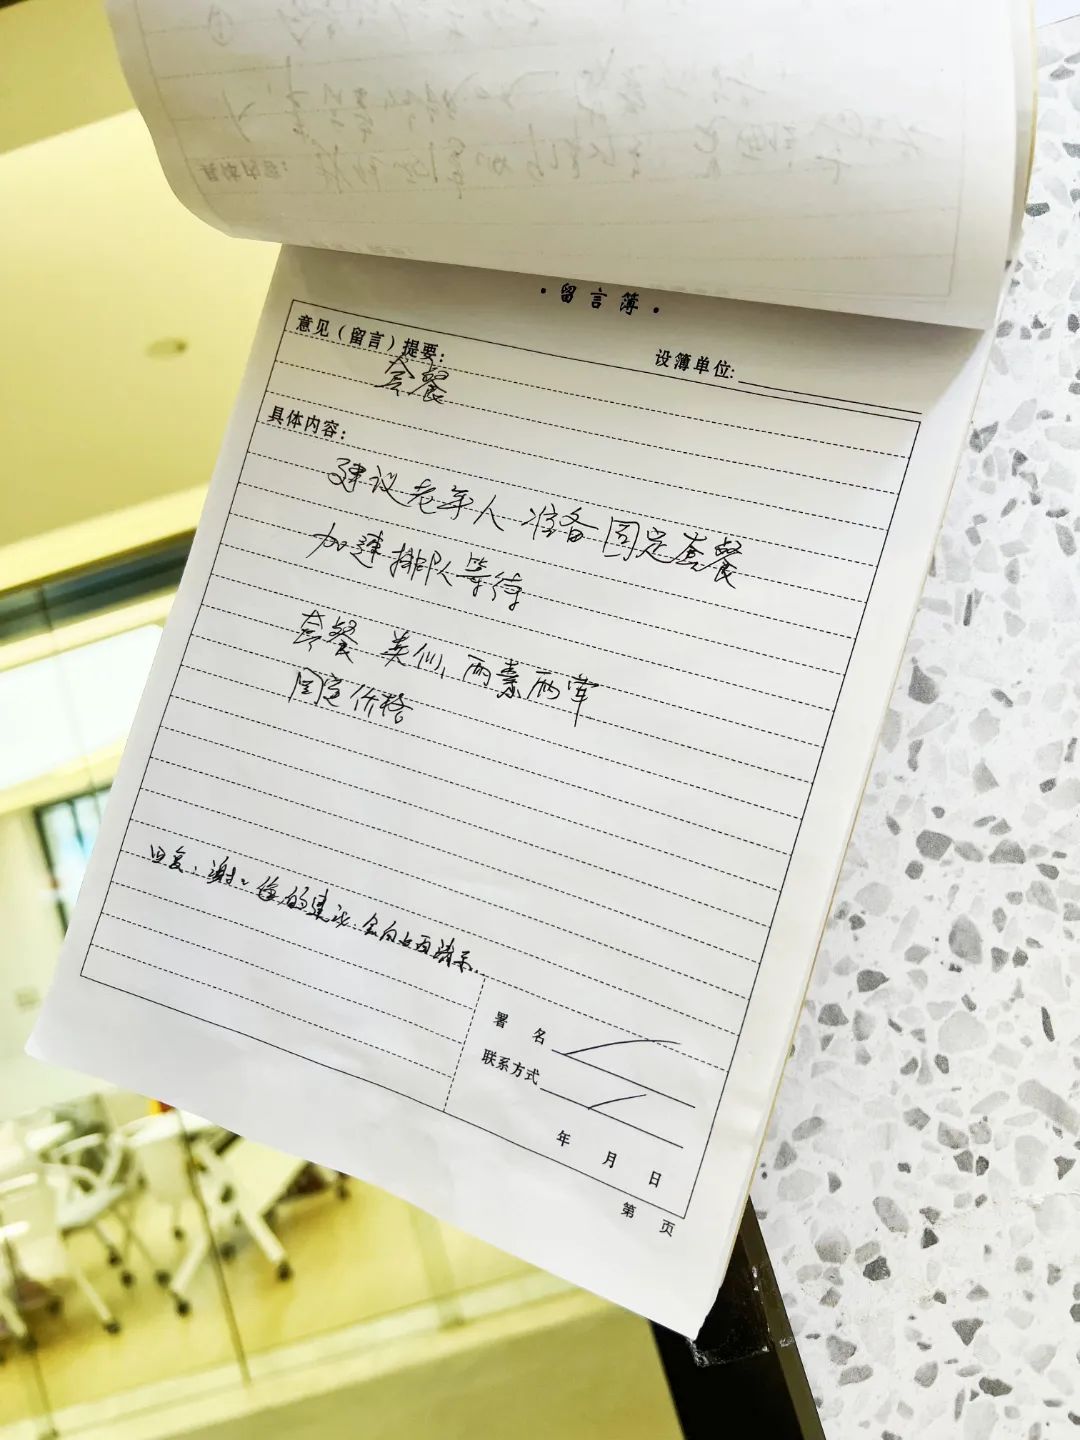 ·留言簿·
设簿单位:
意见（留言）提要:
套餐
具体内容:
建议老年人准备固定套餐
加速排队等待
套餐 类似、两素两荤
固定价格
回复：谢谢您的建议，会向上面请示。
署 名
联系方式
年 月 日
第 页